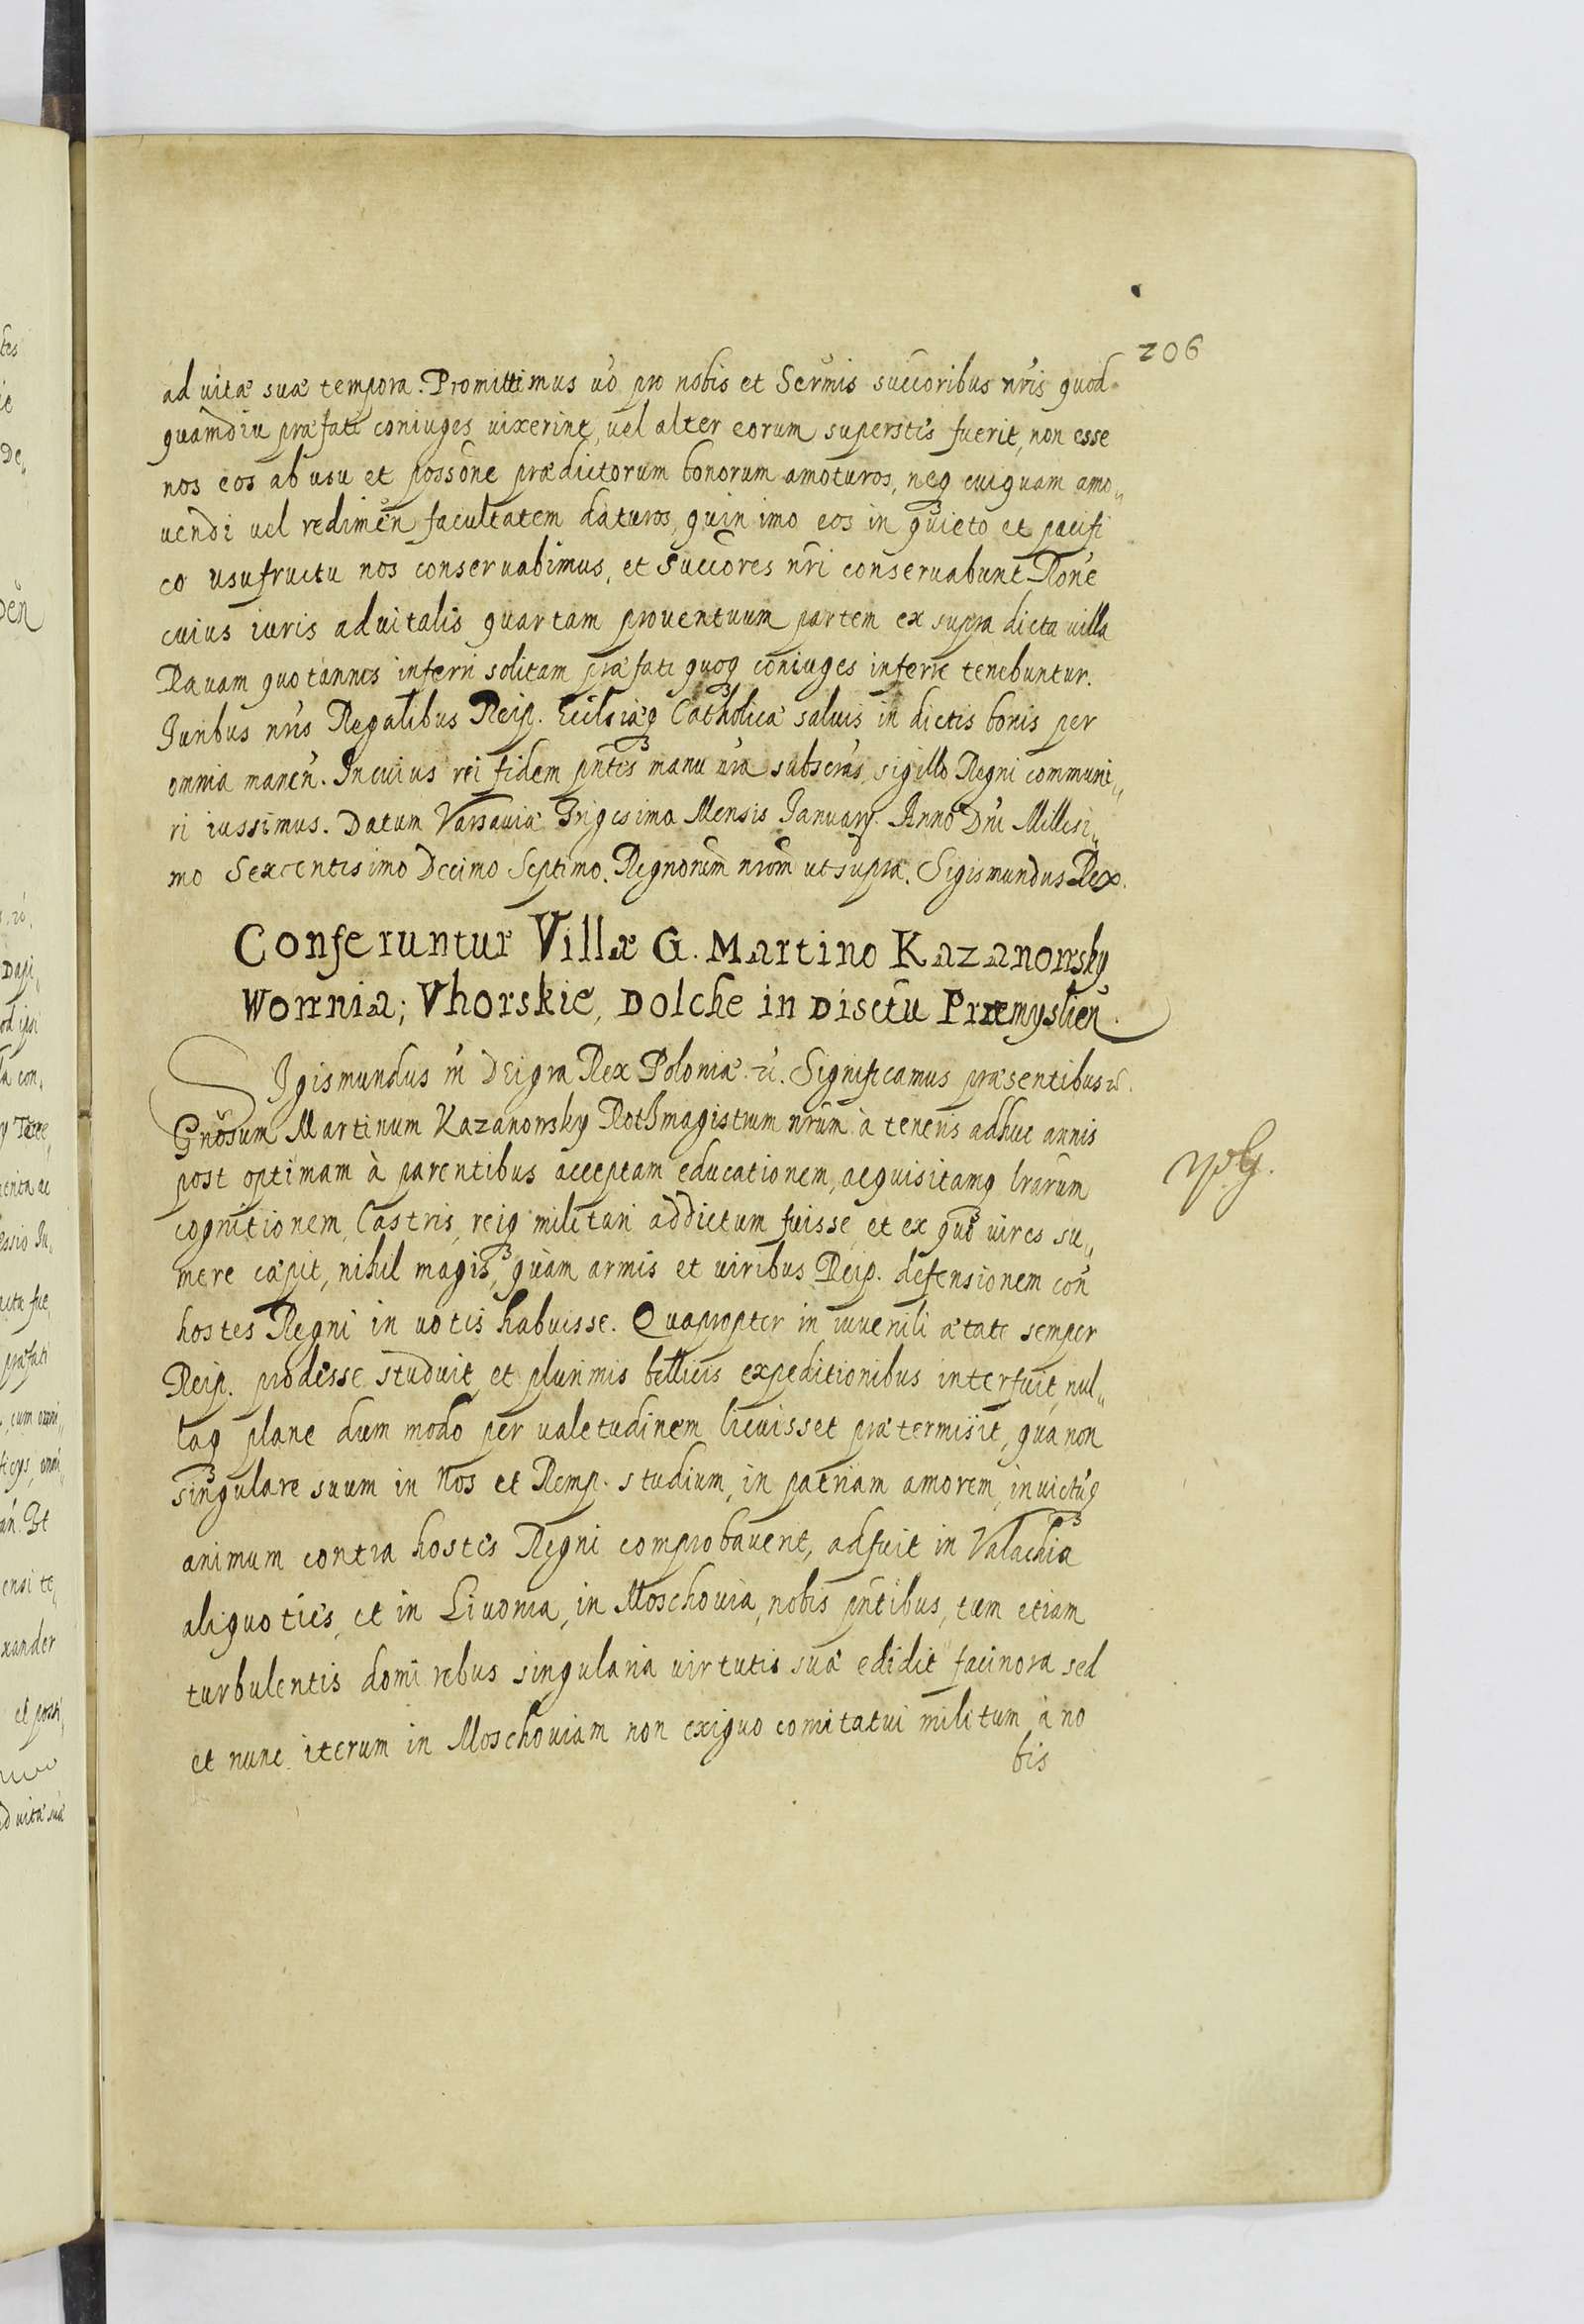 206
ad vitæ suæ tempora. Promittimus vo pro nobis et Sermis succoribus nris quod
quamdiu præfati coniuges vixerint, vel alter eorum superstes fuerit, non esse
nos eos ab usu et possone prædictorum bonorum amoturos, neq cuiquam amo„
vendi vel redimen facultatem daturos, quin imo eos in quieto et pacifi
co usufructu nos conservabimus, et succores nri conservabunt. Rone
cuius iuris advitalis quartam proventuum partem ex supra dicta villa
Ravam quotannis inferri solitam præfati quoq coniuges inferre tenebuntur.
Iuribus nris Regalibus Reip. Ecclsiæq Catholicæ salvis in dictis bonis per
omnia manen. In cuius rei fidem pntes manu nra subscras, sigillo Regni communi„
ri iussimus. Datum Varsaviæ Trigesima Mensis Ianuarij. Anno Dni Millesi„
mo Sexcentesimo Decimo Septimo. Regnorum nrom ut supra. Sigismundus Rex.
Conferuntur Villæ G. Martino Kazanowsky
Wownia; Vhorskie, Dolche in Disctu Præmyslien.
SIgismundus III Dei gra Rex Poloniæ &. Significamus præsentibus &.
Gnosum Martinum Kazanowsky Rothmagistrum nrum à teneris adhuc annis
post optimam à parentibus acceptam educationem, acquisitamq lrarum
cognitionem, Castris, reiq militari addictum fuisse, et ex quo vires su„
mere cæpit, nihil magis, quàm armis et viribus Reip. defensionem con
hostes Regni in votis habuisse. Quapropter in iuvenili ætate semper
Reip. prodesse studuit, et plurimis bellicis expeditionibus interfuit, nul„
laq plane dum modo per valetudinem licuisset prætermisit, qua non
singulare suum in Nos et Remp. studium, in patriam amorem, invictuq
animum contra hostes Regni comprobaverit, adfuit in Valachia
aliquoties, et in Livonia, in Moschovia, nobis pntibus, tum etiam
turbulentis domi rebus singularia virtutis suæ edidit facinora sed
et nunc iterum in Moschoviam non exiguo comitatui militum à no
bis